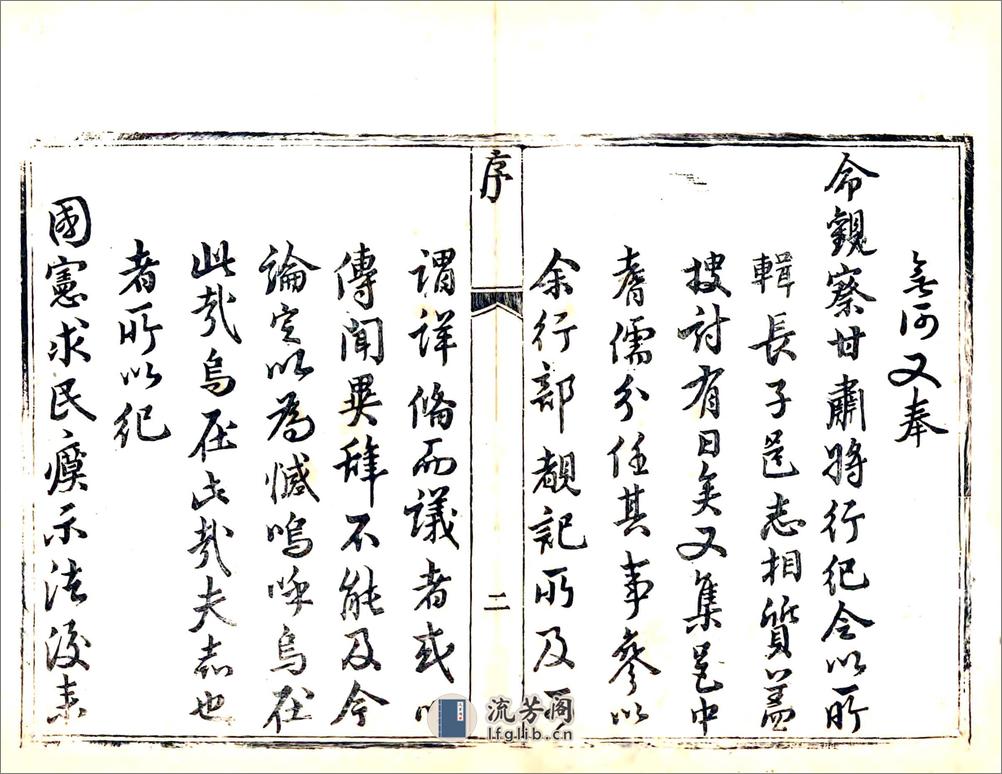 無何又奉
命觀察甘肅將行紀令以所
輯長子邑志相質蓋
搜討有日矣又集邑中
耆儒分任其事參以
余行部覩記所及可
序
二
謂詳俻而議者或以
傳聞異辭不能及今
論定以為憾嗚呼烏在
此哉烏在此哉夫志也
者所以紀
國憲求民瘼示法後来
流芳阁
lfglib.cn